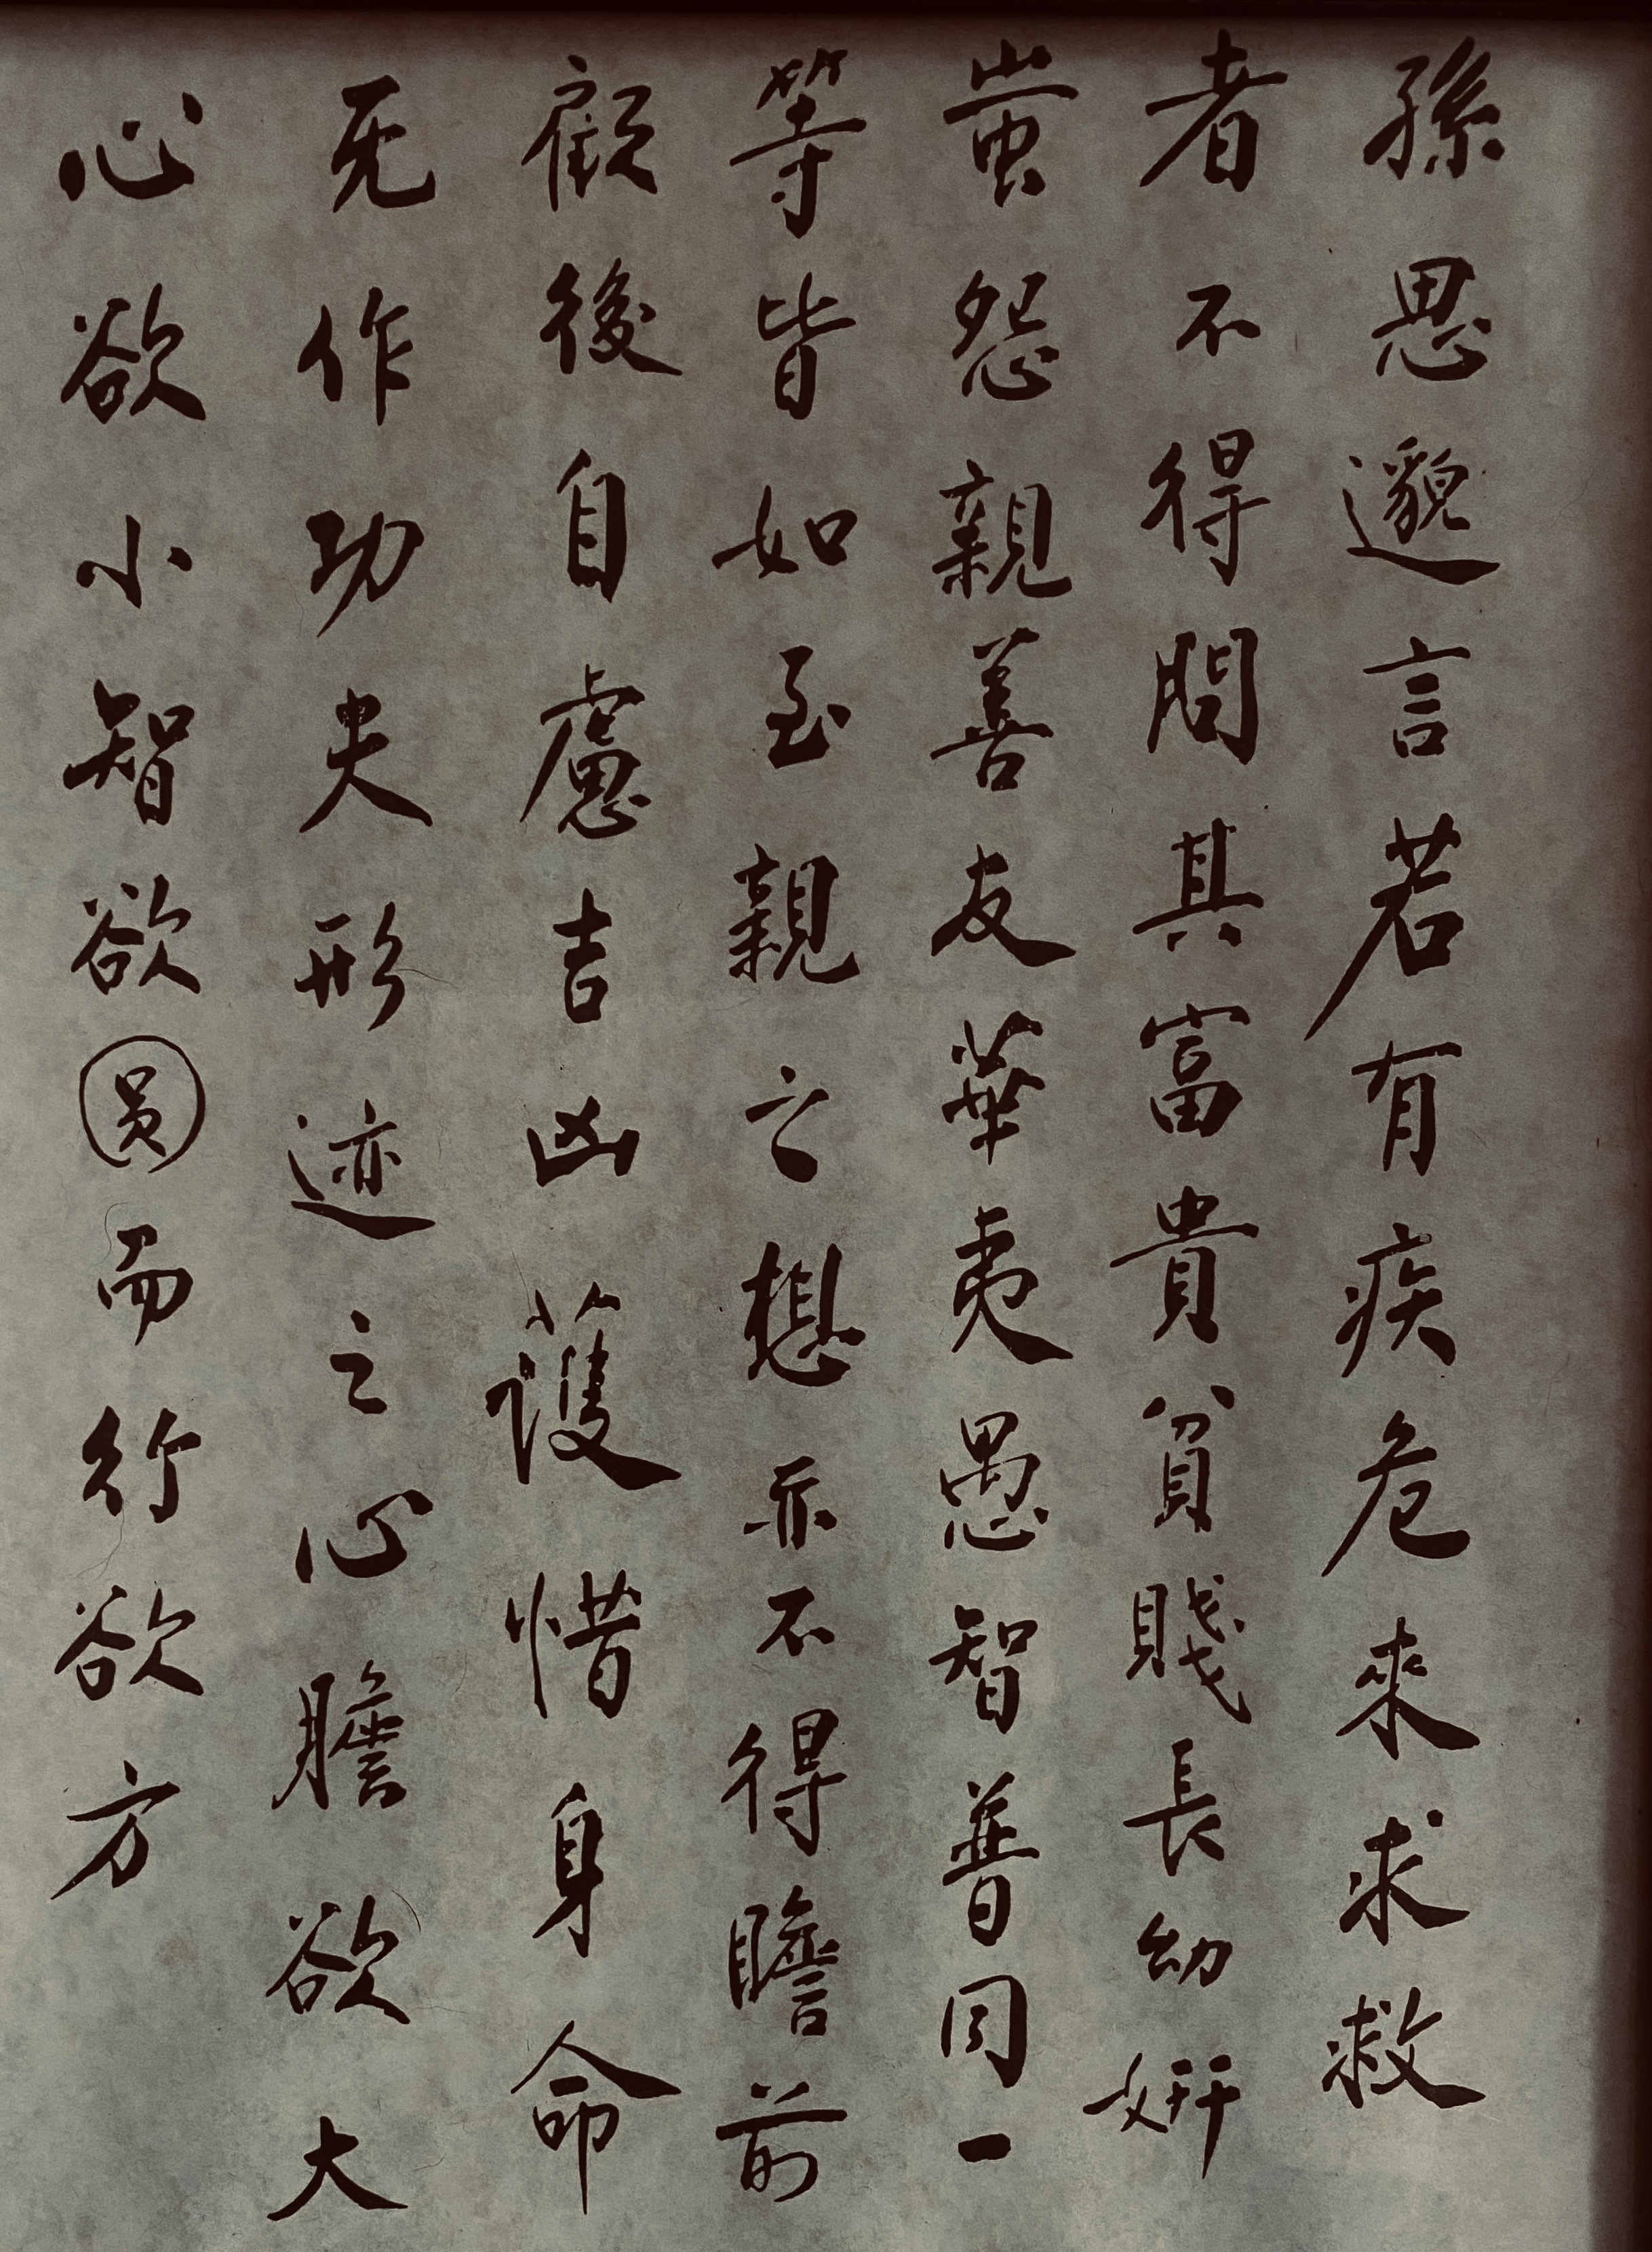 孫思邈言若有疾危來求救
者不得問其富貴貧賤長幼妍
蚩怨親善友華夷愚智普同一
等皆如至親之想亦不得瞻前
顧後自慮吉凶護惜身命
无作功夫形迹之心膽欲大
心欲小智欲圓而行欲方